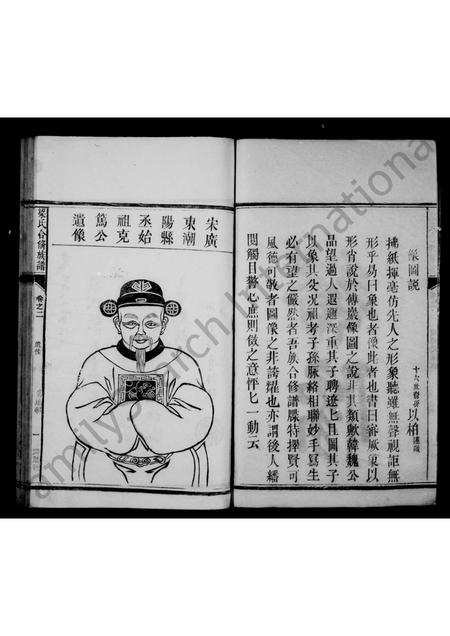 像圖說
十六世裔孫以柏謹題
摛紙揮毫仿先人之形象聽雖無聲視詎無
形乎易曰象也者像此者也書曰審厥象以
形肖說於傅巖像圖之說非其類歟韓魏公
品望過人遐邇深重其子聘遼七且圖其子
以象其父况祖考子孫脉絡相聯妙手寫生
必有望之儼然者吾族合修譜牒特擇賢可
風德可敬者圖像之非誇耀也亦謂後人繙
閱觸目警心庶則傚之意怦七一動云
宋廣
東潮
陽縣
丞始
祖克
篤公
遺像
梁氏合修族譜
卷之二
遺像
一
familysearch International